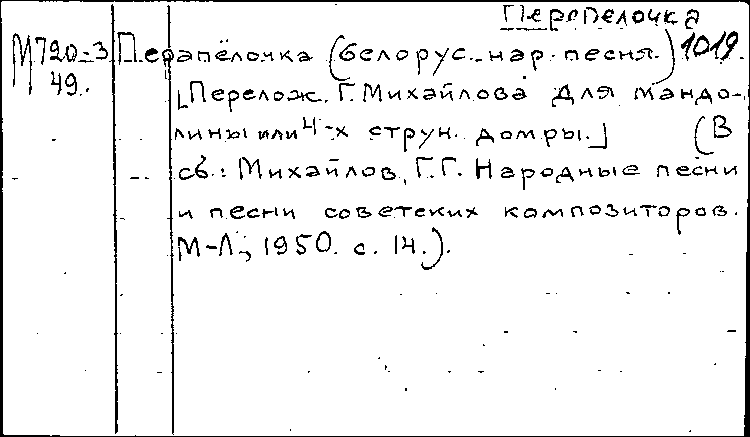 Перепелочка
М720-3 Перапёлочка (белорус. нар. песня.) 1019.
49. [Перелож. Г. Михайлова для мандо-
лины или 4-х струн. домры.] (В
сб.: Михайлов, Г.Г. Народные песни
и песни советских композиторов.
М-Л., 1950. с. 14.).